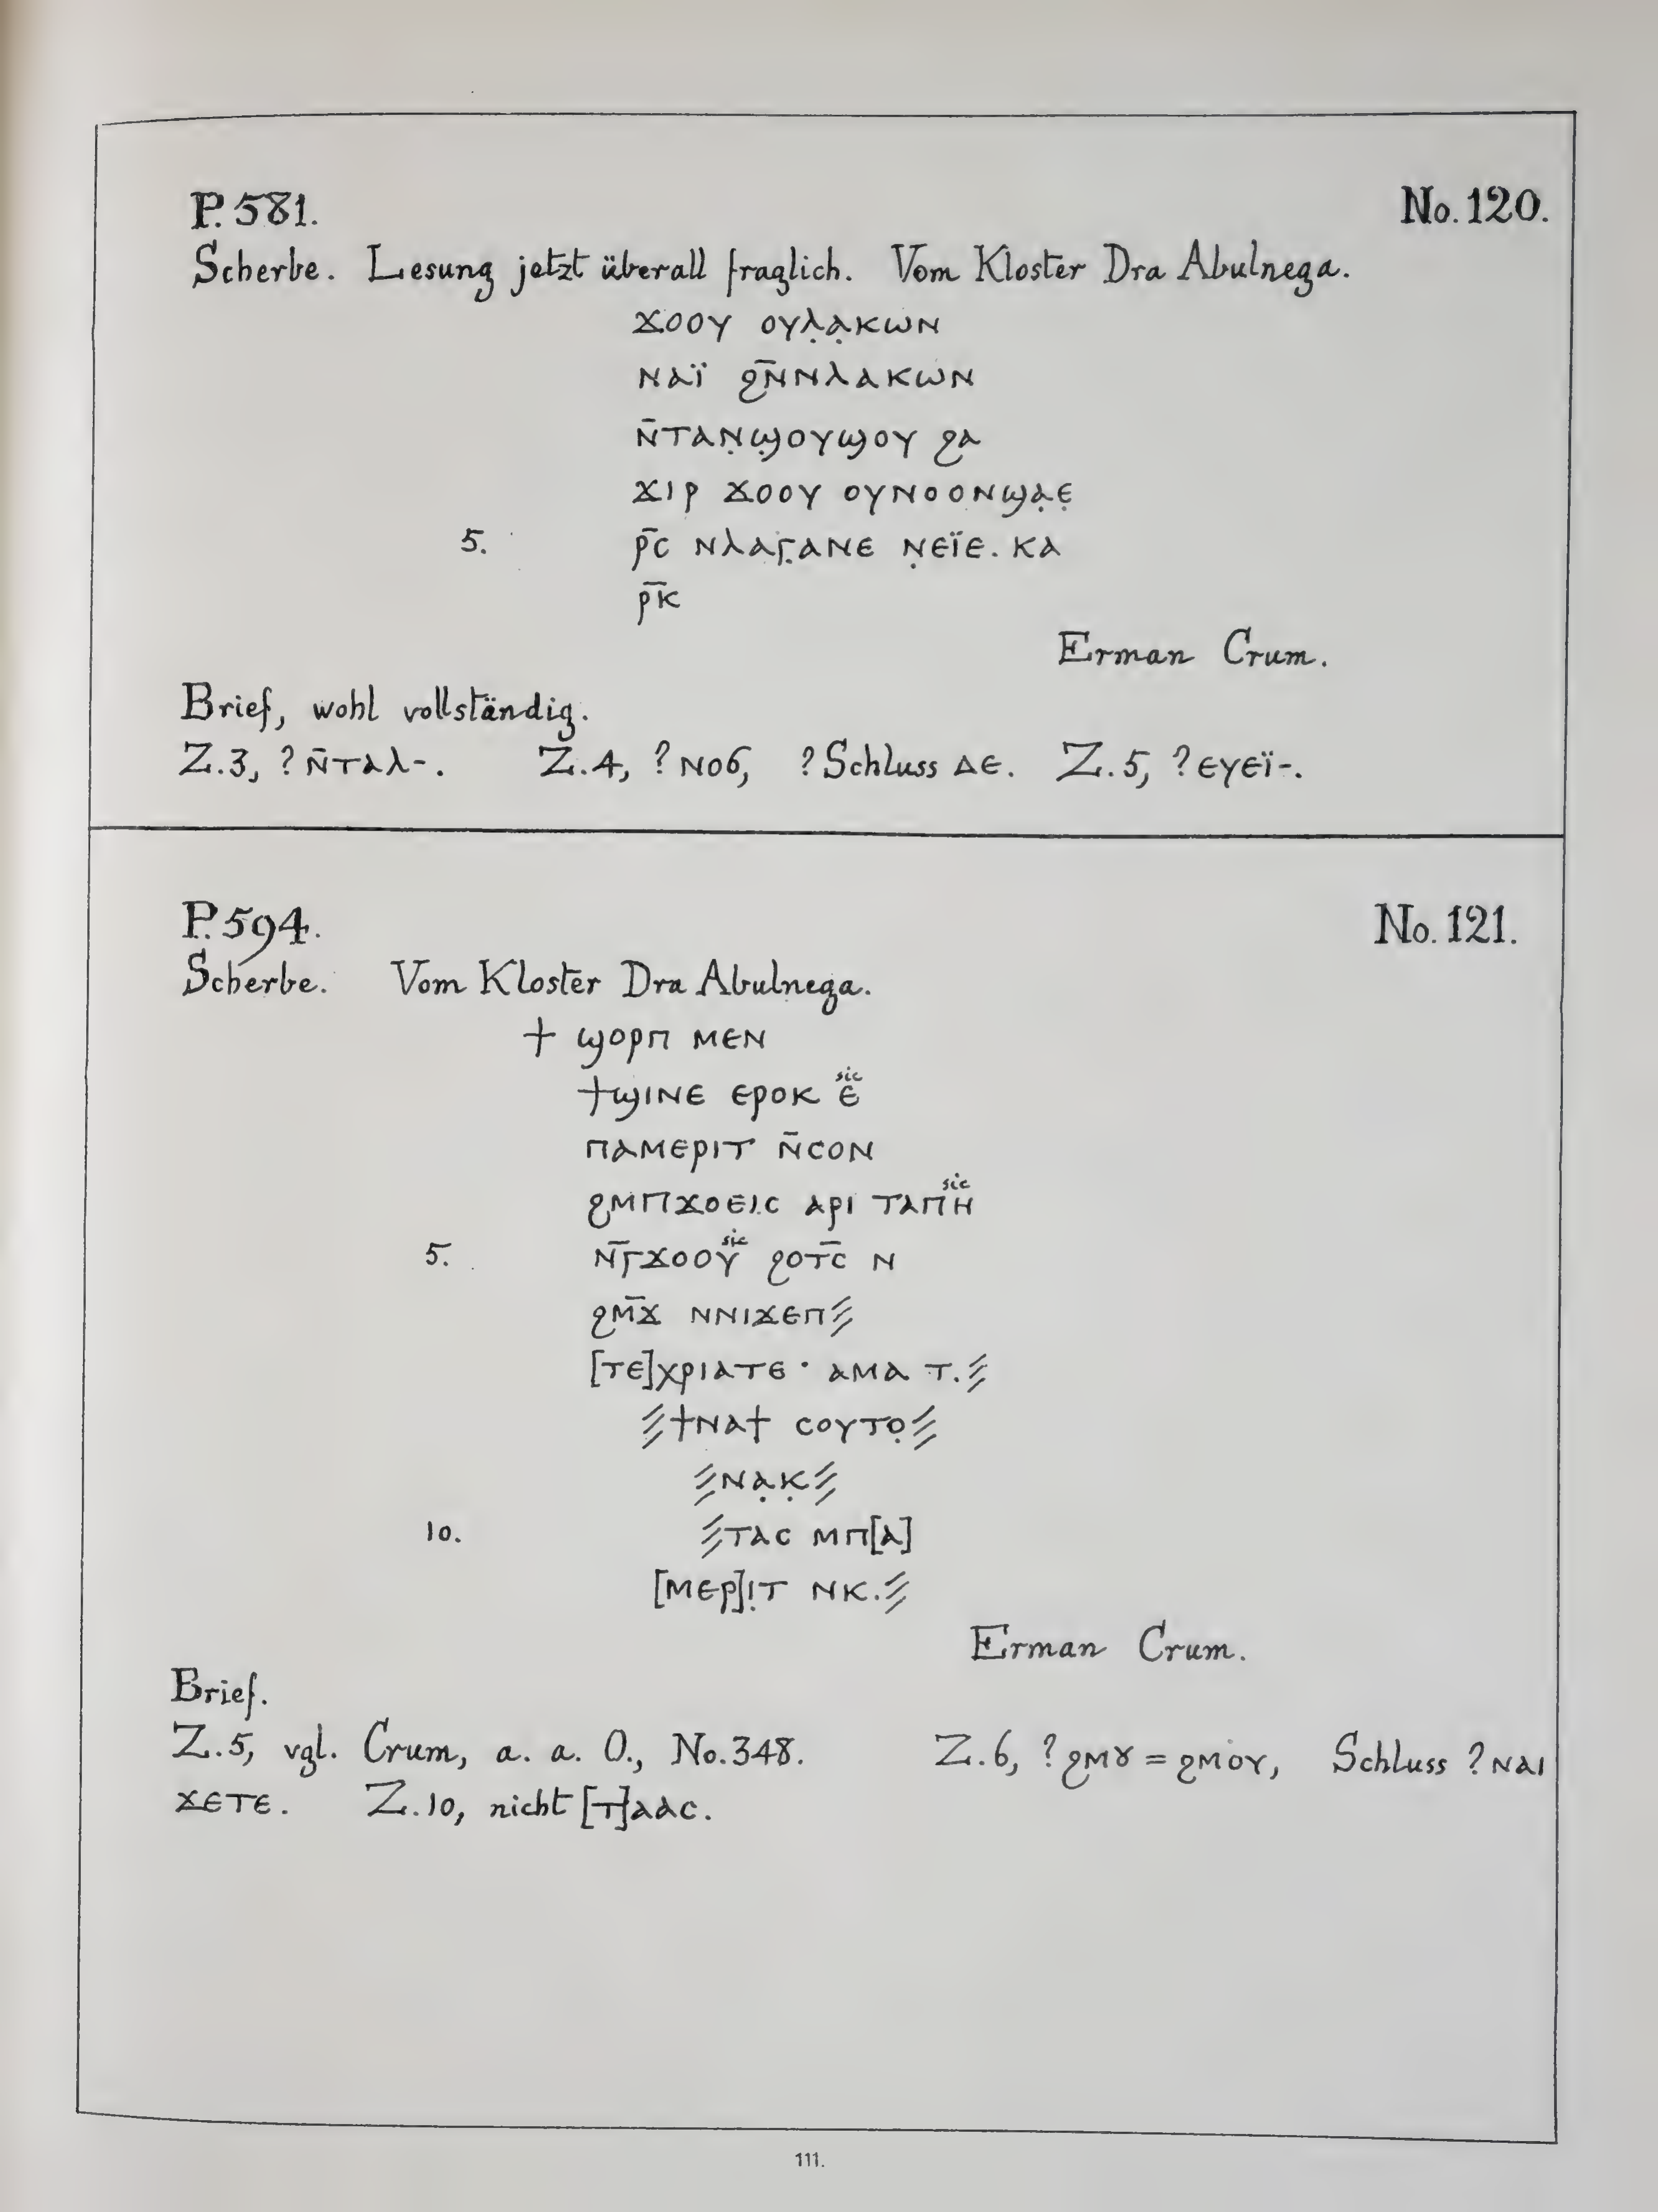 P. 581. No. 120.
Scherbe. Lesung jetzt überall fraglich. Vom Kloster Dra Abulnega.
ϫⲟⲟⲩ ⲟⲩⲗ̣ⲁ̣ⲕⲱⲛ
ⲛⲁⲓ̈ ϩⲛ̅ⲛⲗⲁⲕⲱⲛ
ⲛ̅ⲧⲁⲛ̣ϣ̣ⲟⲩϣⲟⲩ ϩⲁ
ϫⲓⲣ ϫⲟⲟⲩ ⲟⲩⲛⲟⲟⲛϣⲁ̣ⲉ̣
5. ⲣ̅ⲥ ⲛⲗⲁⲅ̣ⲁⲛⲉ ⲛ̣ⲉⲓ̈ⲉ. ⲕⲁ
ⲣ̅ⲕ
Erman Crum.
Brief, wohl vollständig.
Z.3, ? ⲛ̅ⲧⲁⲗ-. Z.4, ? ⲛⲟϭ, ? Schluss ⲇⲉ. Z.5, ? ⲉⲩⲉⲓ̈-.
P. 594. No. 121.
Scherbe. Vom Kloster Dra Abulnega.
+ ϣⲟⲣⲡ ⲙⲉⲛ
ϯϣⲓⲛⲉ ⲉⲣⲟⲕ ⲉ̅ sic
ⲡⲁⲙⲉⲣⲓⲧ ⲛ̅ⲥⲟⲛ
ϩⲙⲡϫⲟⲉⲓⲥ ⲁⲣⲓ ⲧⲁⲡⲏ sic
5. ⲛ̅ⲅϫⲟⲟⲩ sic ϩⲟⲧⲥ̅ ⲛ
ϩⲙ̅ϫ ⲛⲛⲓϫⲉⲡ⫽
[ⲧⲉ]ⲭⲣⲓⲁⲧⲉ · ⲁⲙⲁ ⲧ.⫽
⫽ϯⲛⲁϯ ⲥⲟⲩⲧⲟ̣⫽
⫽ⲛⲁ̣ⲕ̣⫽
10. ⫽ⲧⲁⲥ ⲙⲡ[ⲁ]
[ⲙⲉⲣ]ⲓ̣ⲧ ⲛⲕ.⫽
Erman Crum.
Brief.
Z.5, vgl. Crum, a. a. O., No. 348. Z.6, ? ϩⲙȣ = ϩⲙⲟⲩ, Schluss ? ⲛⲁⲓ
ϫⲉⲧⲉ. Z.10, nicht [ⲧ]ⲁⲁⲥ.
111.